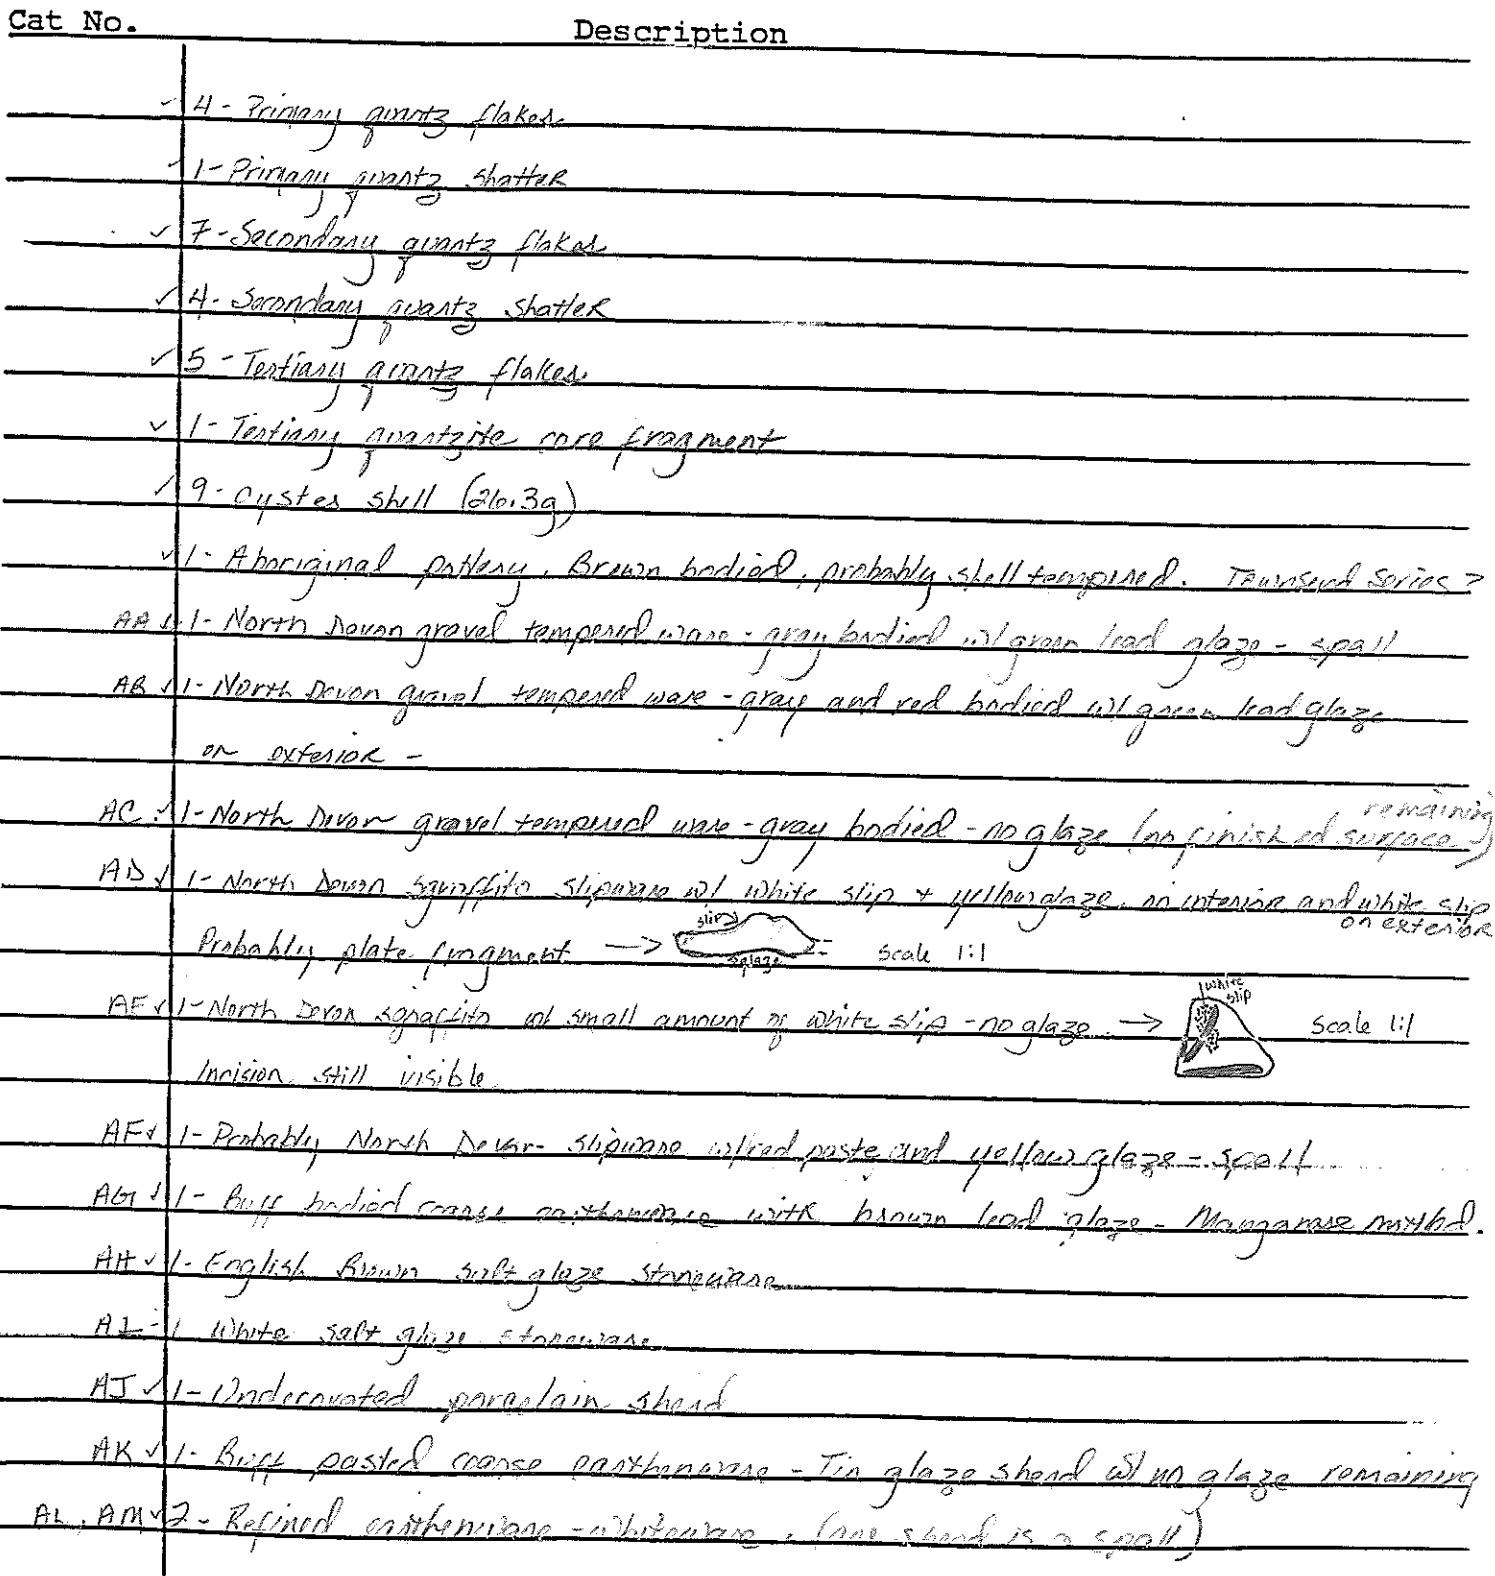 Cat No. Description
✓ 4 - Primary quartz flakes
✓ 1 - Primary quartz shatter
✓ 7 - Secondary quartz flakes
✓ 4 - Secondary quartz shatter
✓ 5 - Tertiary quartz flakes
✓ 1 - Tertiary quartzite core fragment
✓ 9 - oyster shell (26.3g)
✓ 1 - Aboriginal pottery. Brown bodied, probably shell tempered. Townsend Series ?
AA ✓ 1 - North Devon gravel tempered ware - gray bodied w/ green lead glaze - spall
AB ✓ 1 - North Devon gravel tempered ware - gray and red bodied w/ green lead glaze
on exterior -
AC ✓ 1 - North Devon gravel tempered ware - gray bodied - no glaze (no finished surface remaining)
AD ✓ 1 - North Devon sgraffito slipware w/ white slip + yellow glaze on interior and white slip
on exterior
Probably plate fragment → slip glaze Scale 1:1
AE ✓ 1 - North Devon sgraffito w/ small amount of white slip - no glaze → white slip Scale 1:1
Incision still visible
AF ✓ 1 - Probably North Devon slipware w/ red paste and yellow glaze - spall
AG ✓ 1 - Buff bodied coarse earthenware with brown lead glaze - Manganese mottled.
AH ✓ 1 - English Brown salt glaze stoneware
AI - 1 White salt glaze stoneware
AJ ✓ 1 - Undecorated porcelain sherd
AK ✓ 1 - Buff pasted coarse earthenware - Tin glaze sherd w/ no glaze remaining
AL, AM ✓ 2 - Refined earthenware - whiteware. (one sherd is a spall)